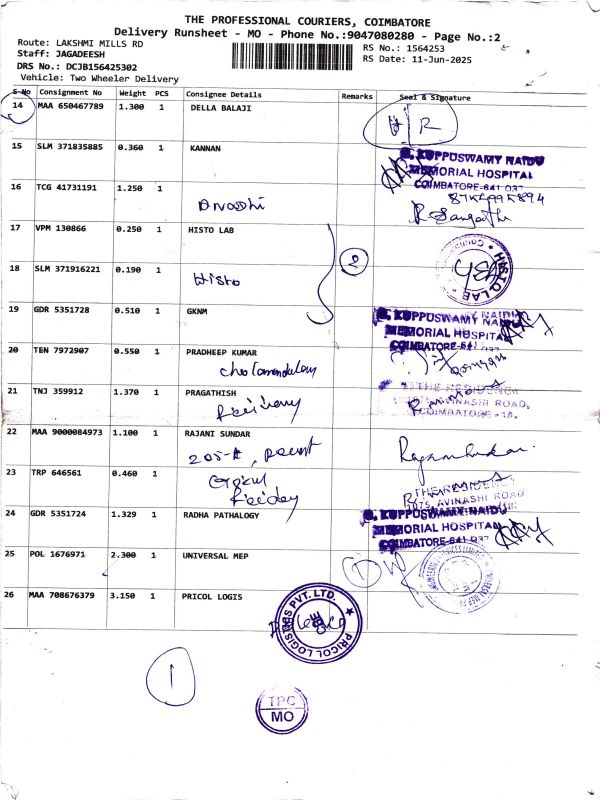 THE PROFESSIONAL COURIERS, COIMBATORE
Delivery Runsheet - MO - Phone No.:9047080280 - Page No.:2
Route: LAKSHMI MILLS RD
RS No.: 1564253
Staff: JAGADEESH
RS Date: 11-Jun-2025
DRS No.: DCJB156425302
Vehicle: Two Wheeler Delivery
S No Consignment No Weight PCS Consignee Details Remarks Seal & Signature
14 MAA 650467789 1.300 1 DELLA BALAJI
15 SLM 371835885 0.360 1 KANNAN
G. KUPPUSWAMY NAIDU
MEMORIAL HOSPITAL
COIMBATORE-641 037
16 TCG 41731191 1.250 1
17 VPM 130866 0.250 1 HISTO LAB
2
HISTO LAB
18 SLM 371916221 0.190 1
Histo
19 GDR 5351728 0.510 1 GKNM
G. KUPPUSWAMY NAIDU
MEMORIAL HOSPITAL
COIMBATORE-641
20 TEN 7972907 0.550 1 PRADHEEP KUMAR
21 TNJ 359912 1.370 1 PRAGATHISH
THE RESIDENCY
1075, AVINASHI ROAD,
COIMBATORE - 18.
22 MAA 9000084973 1.100 1 RAJANI SUNDAR
205-A,
23 TRP 646561 0.460 1
THE RESIDENCY
1075, AVINASHI ROAD
24 GDR 5351724 1.329 1 RADHA PATHALOGY
G. KUPPUSWAMY NAIDU
MEMORIAL HOSPITAL
COIMBATORE-641 037
25 POL 1676971 2.300 1 UNIVERSAL MEP
26 MAA 708676379 3.150 1 PRICOL LOGIS
PRICOL LOGISTICS PVT. LTD.
1
TPC
MO